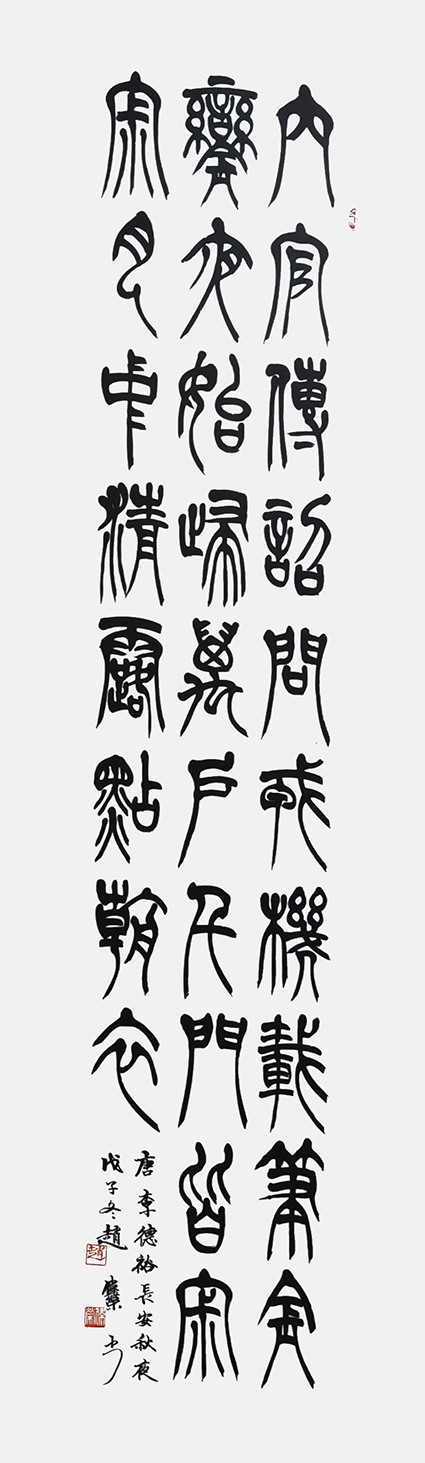 內官傳詔問戎機載筆金
鑾夜始歸萬戶千門皆寂
寂月中清露點朝衣
唐李德裕長安秋夜
戊子冬趙書